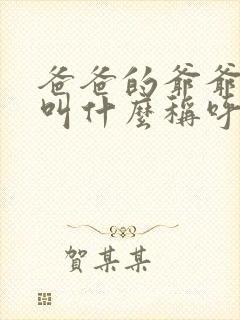 爸爸的爺爺
叫什麼稱呼
賀某某